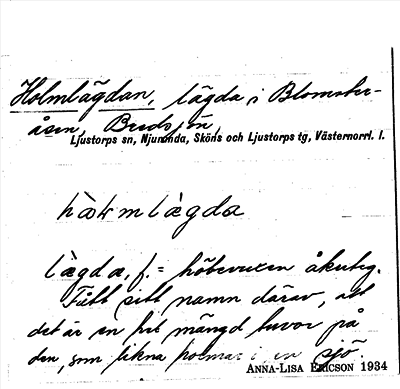 Holmlägdan, lägda i Blomster-
åsen, Bredsjön,
Ljustorps sn, Njurunda, Sköns och Ljustorps tg, Västernorrl. l.
lägda, f. = höbevuxen åkerteg.
Fått sitt namn därav, att
det är en hel mängd tuvor på
den, som likna holmar i en sjö.
ANNA-LISA ERICSON 1934